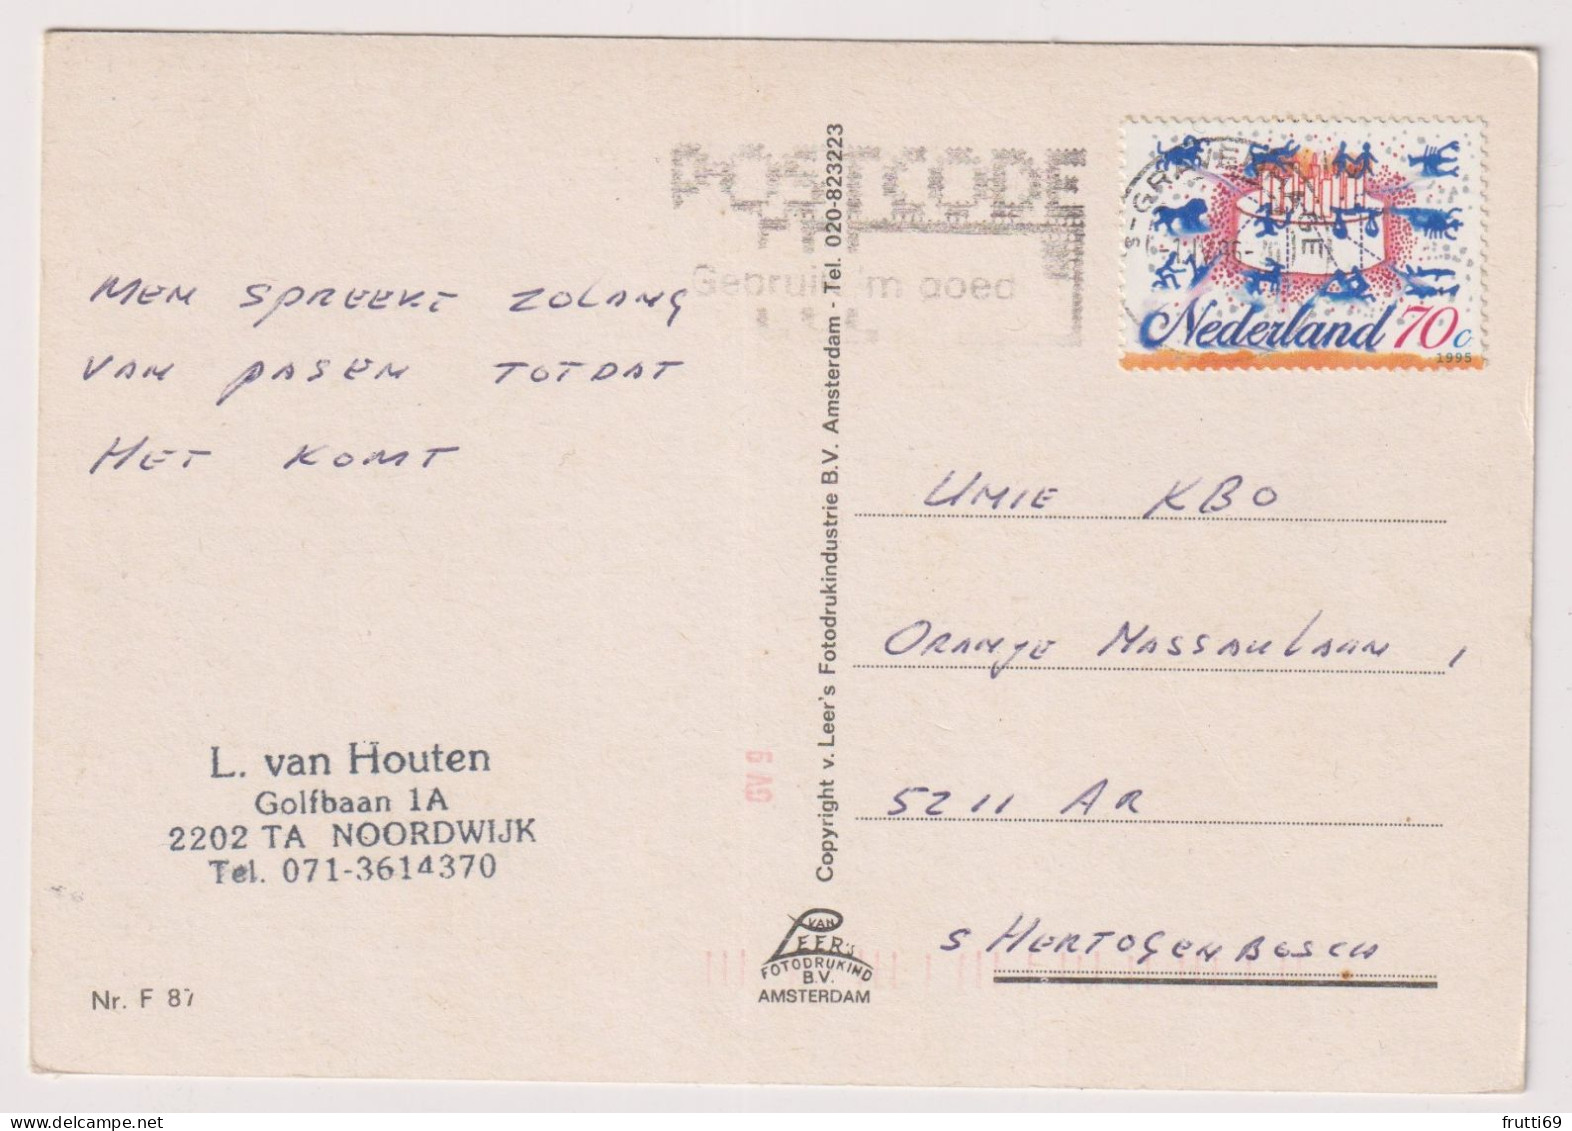 MEN SPREEKT ZOLANG
VAN PASEN TOTDAT
HET KOMT
L. van Houten
Golfbaan 1A
2202 TA NOORDWIJK
Tel. 071-3614370
Nr. F 87
POSTCODE
Gebruik 'm goed
Copyright v. Leer's Fotodrukindustrie B.V. Amsterdam - Tel. 020-823223
GV 9
VAN
LEER'S
FOTODRUKIND
B.V.
AMSTERDAM
's-GRAVENHAGE
Nederland 70c
1995
UNIE KBO
ORANJE NASSAULAAN 1
5211 AR
S HERTOGENBOSCH
frutti69